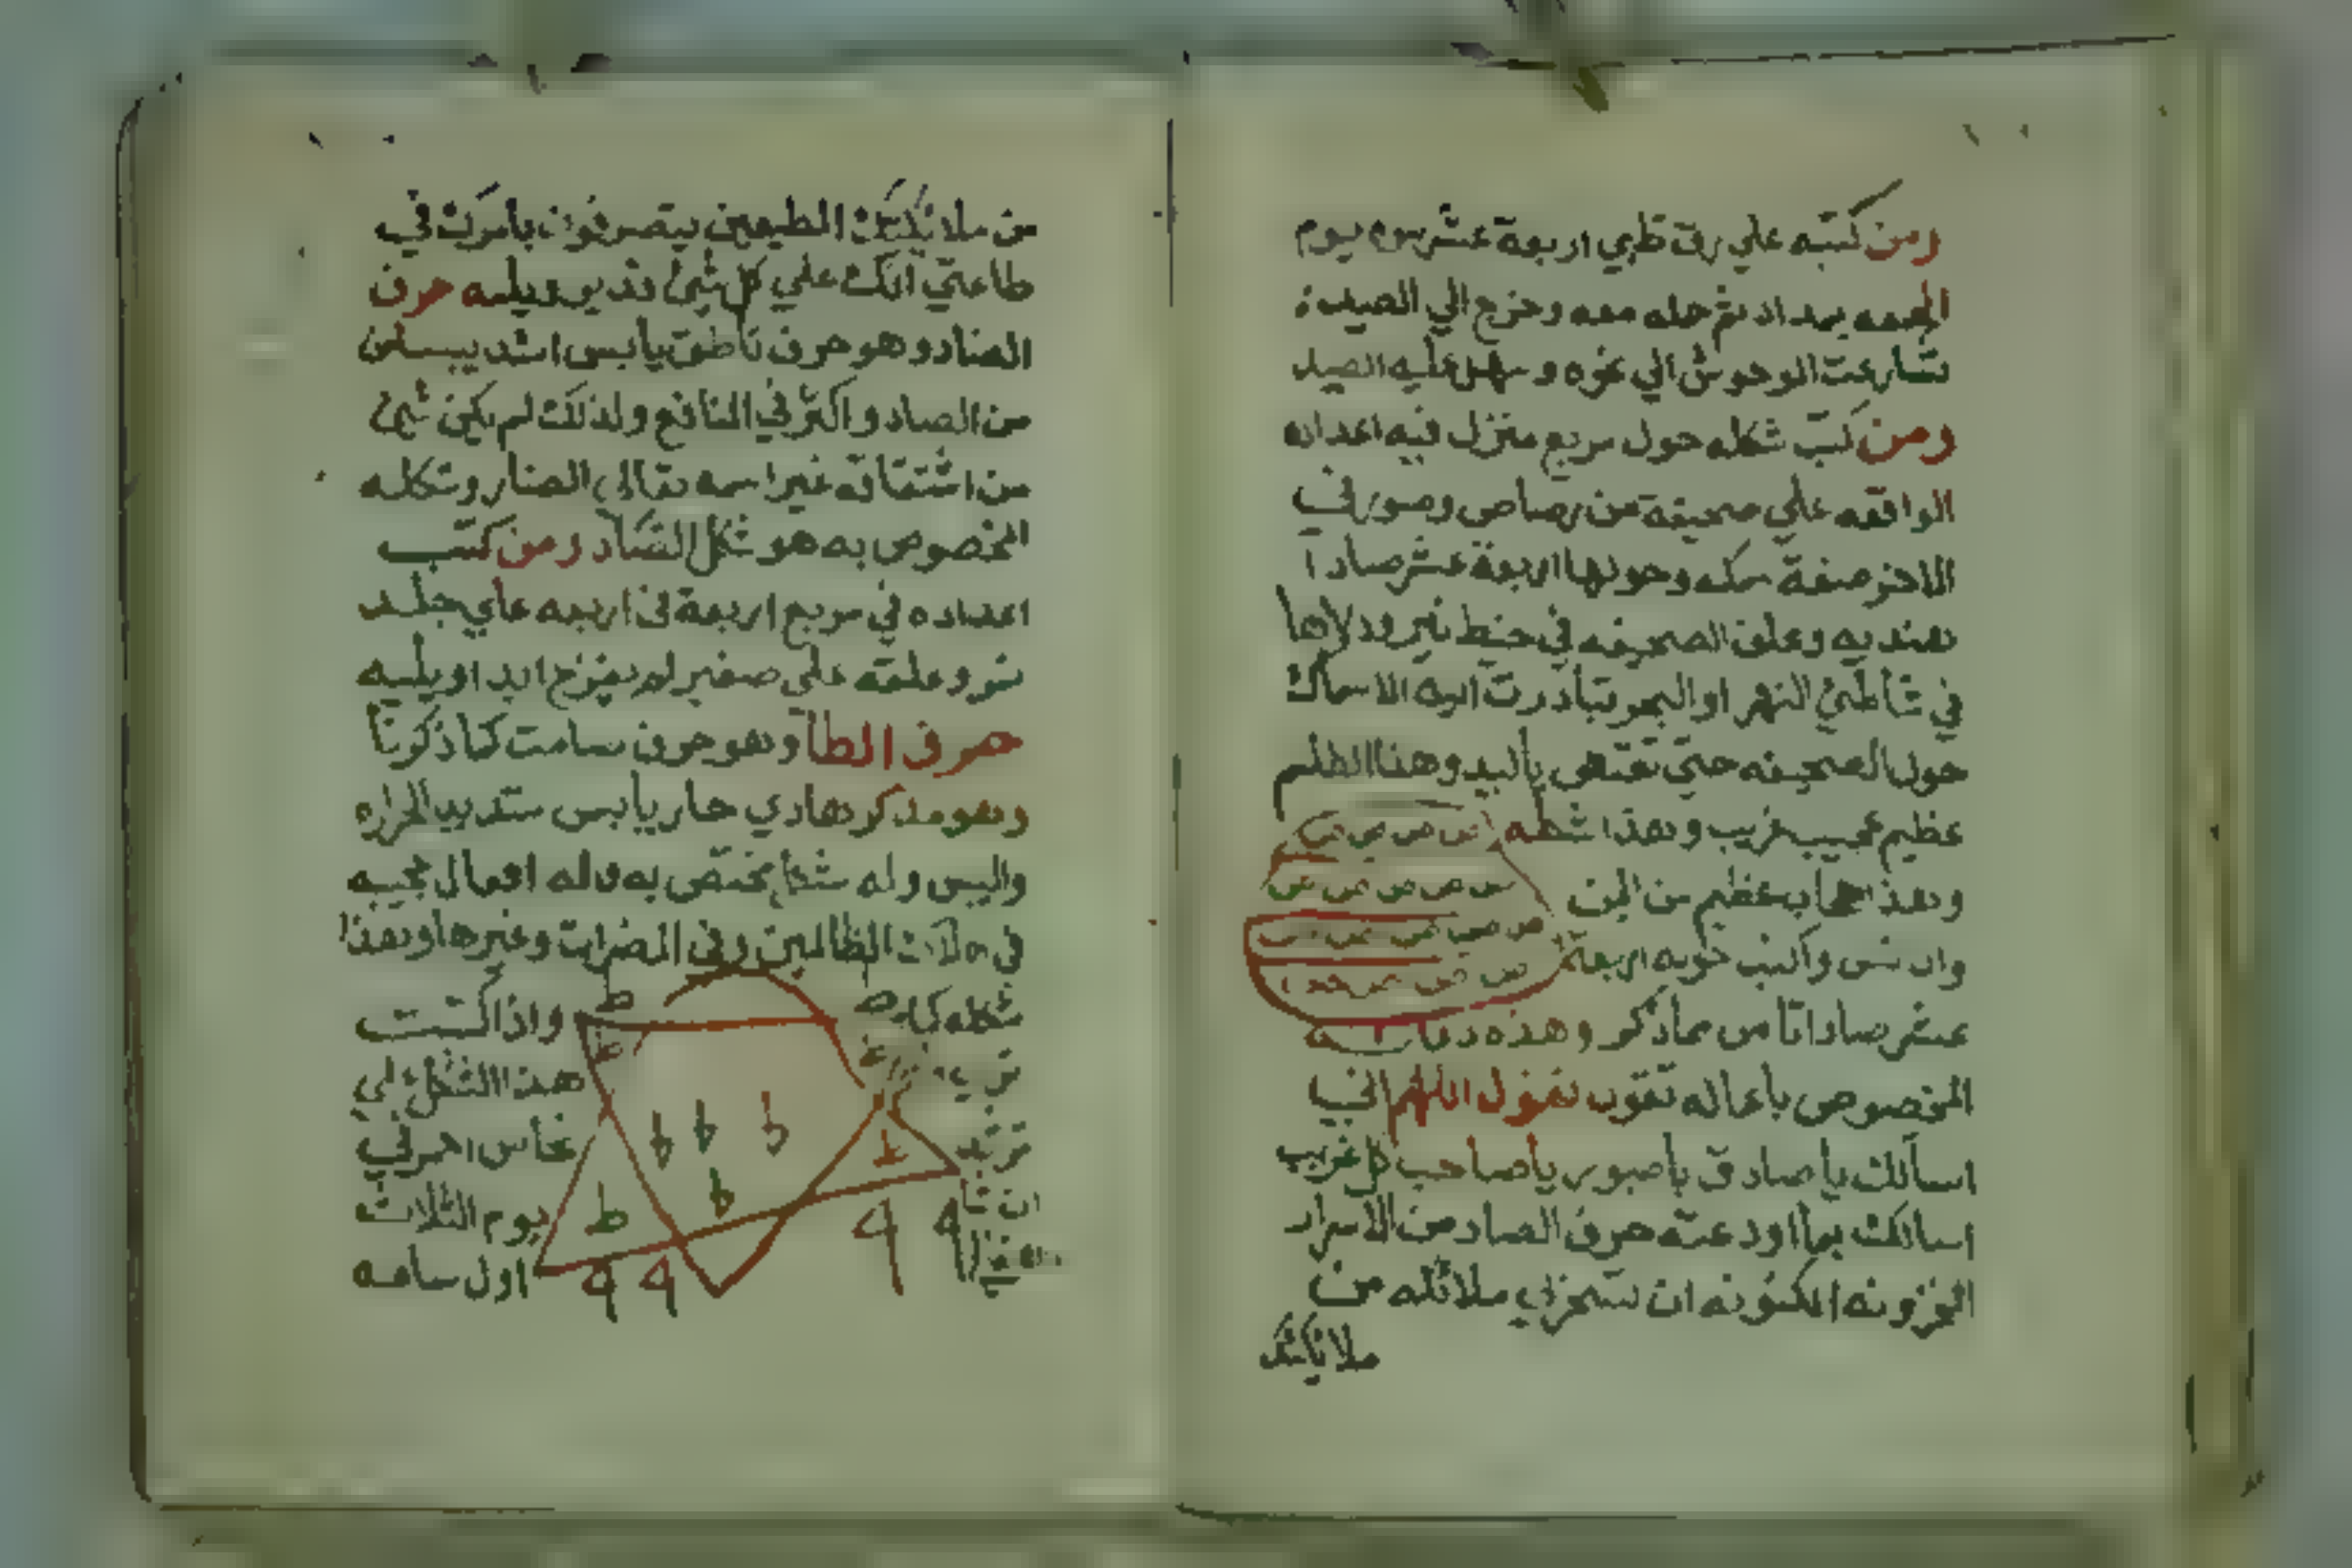 ومن كتبه علي رق ظبي اربعة عشر يوم
الجمعه بمداد ثم حمله معه وخرج الي الصيد
تسارعت الوحوش الي نحوه وسهل عليه الصيد
ومن كتب شكله حول مربع منزل فيه اعداده
الواقعه علي صحيفة من رصاص وصور في
الاخر صفة سمكه وحولها اربعة عشر صادا
هنديه وعلق الصحيفه في خيط ودلاها
في شاطئ النهر او البحر تبادرت اليه الاسماك
حول الصحيفه حتي باليد وهذا الطلسم
عظيم عجيب غريب وهذا شكله
وهذا حجاب عظيم من الجن
وان شئ واكتب حوله اربعة
عشر صادا من ما ذكر وهذه
المخصوص باعماله تقول اللهم اني
اسالك يا صادق يا صبور يا صاحب كل غريب
اسالك بما اودعته حرف الصاد من الاسرار
المخزونه المكنونه ان تسخر لي ملائكه من
ملائكتك
من ملائكتك المطيعين يتصرفون بامرك في
طاعتي انك علي كل شئ قدير ويليه حرف
الضاد وهو حرف ناطق يابس اشد يبسا من
من الصاد واكثر في المنافع ولذلك لم يكن شئ
من اشتقاقه غير اسمه تعالي الضار وشكله
المخصوص به هو شكل الصاد ومن كتب
اعداده في مربع اربعة في اربعه علي جلد
نمر وعلقه علي صغير لم يفزع ابدا ويليه
حرف الطا وهو حرف صامت كما ذكرنا
وهو مذكر هادي حار يابس شديد الحراره
واليبس وله شكل يختص به وله افعال عجيبه
في هلاك الظالمين وفي المضرات وغيرها وهذا
شكله كما واذا كتبت
هذا الشكل في
نحاس احمر في
يوم الثلاث
اول ساعه